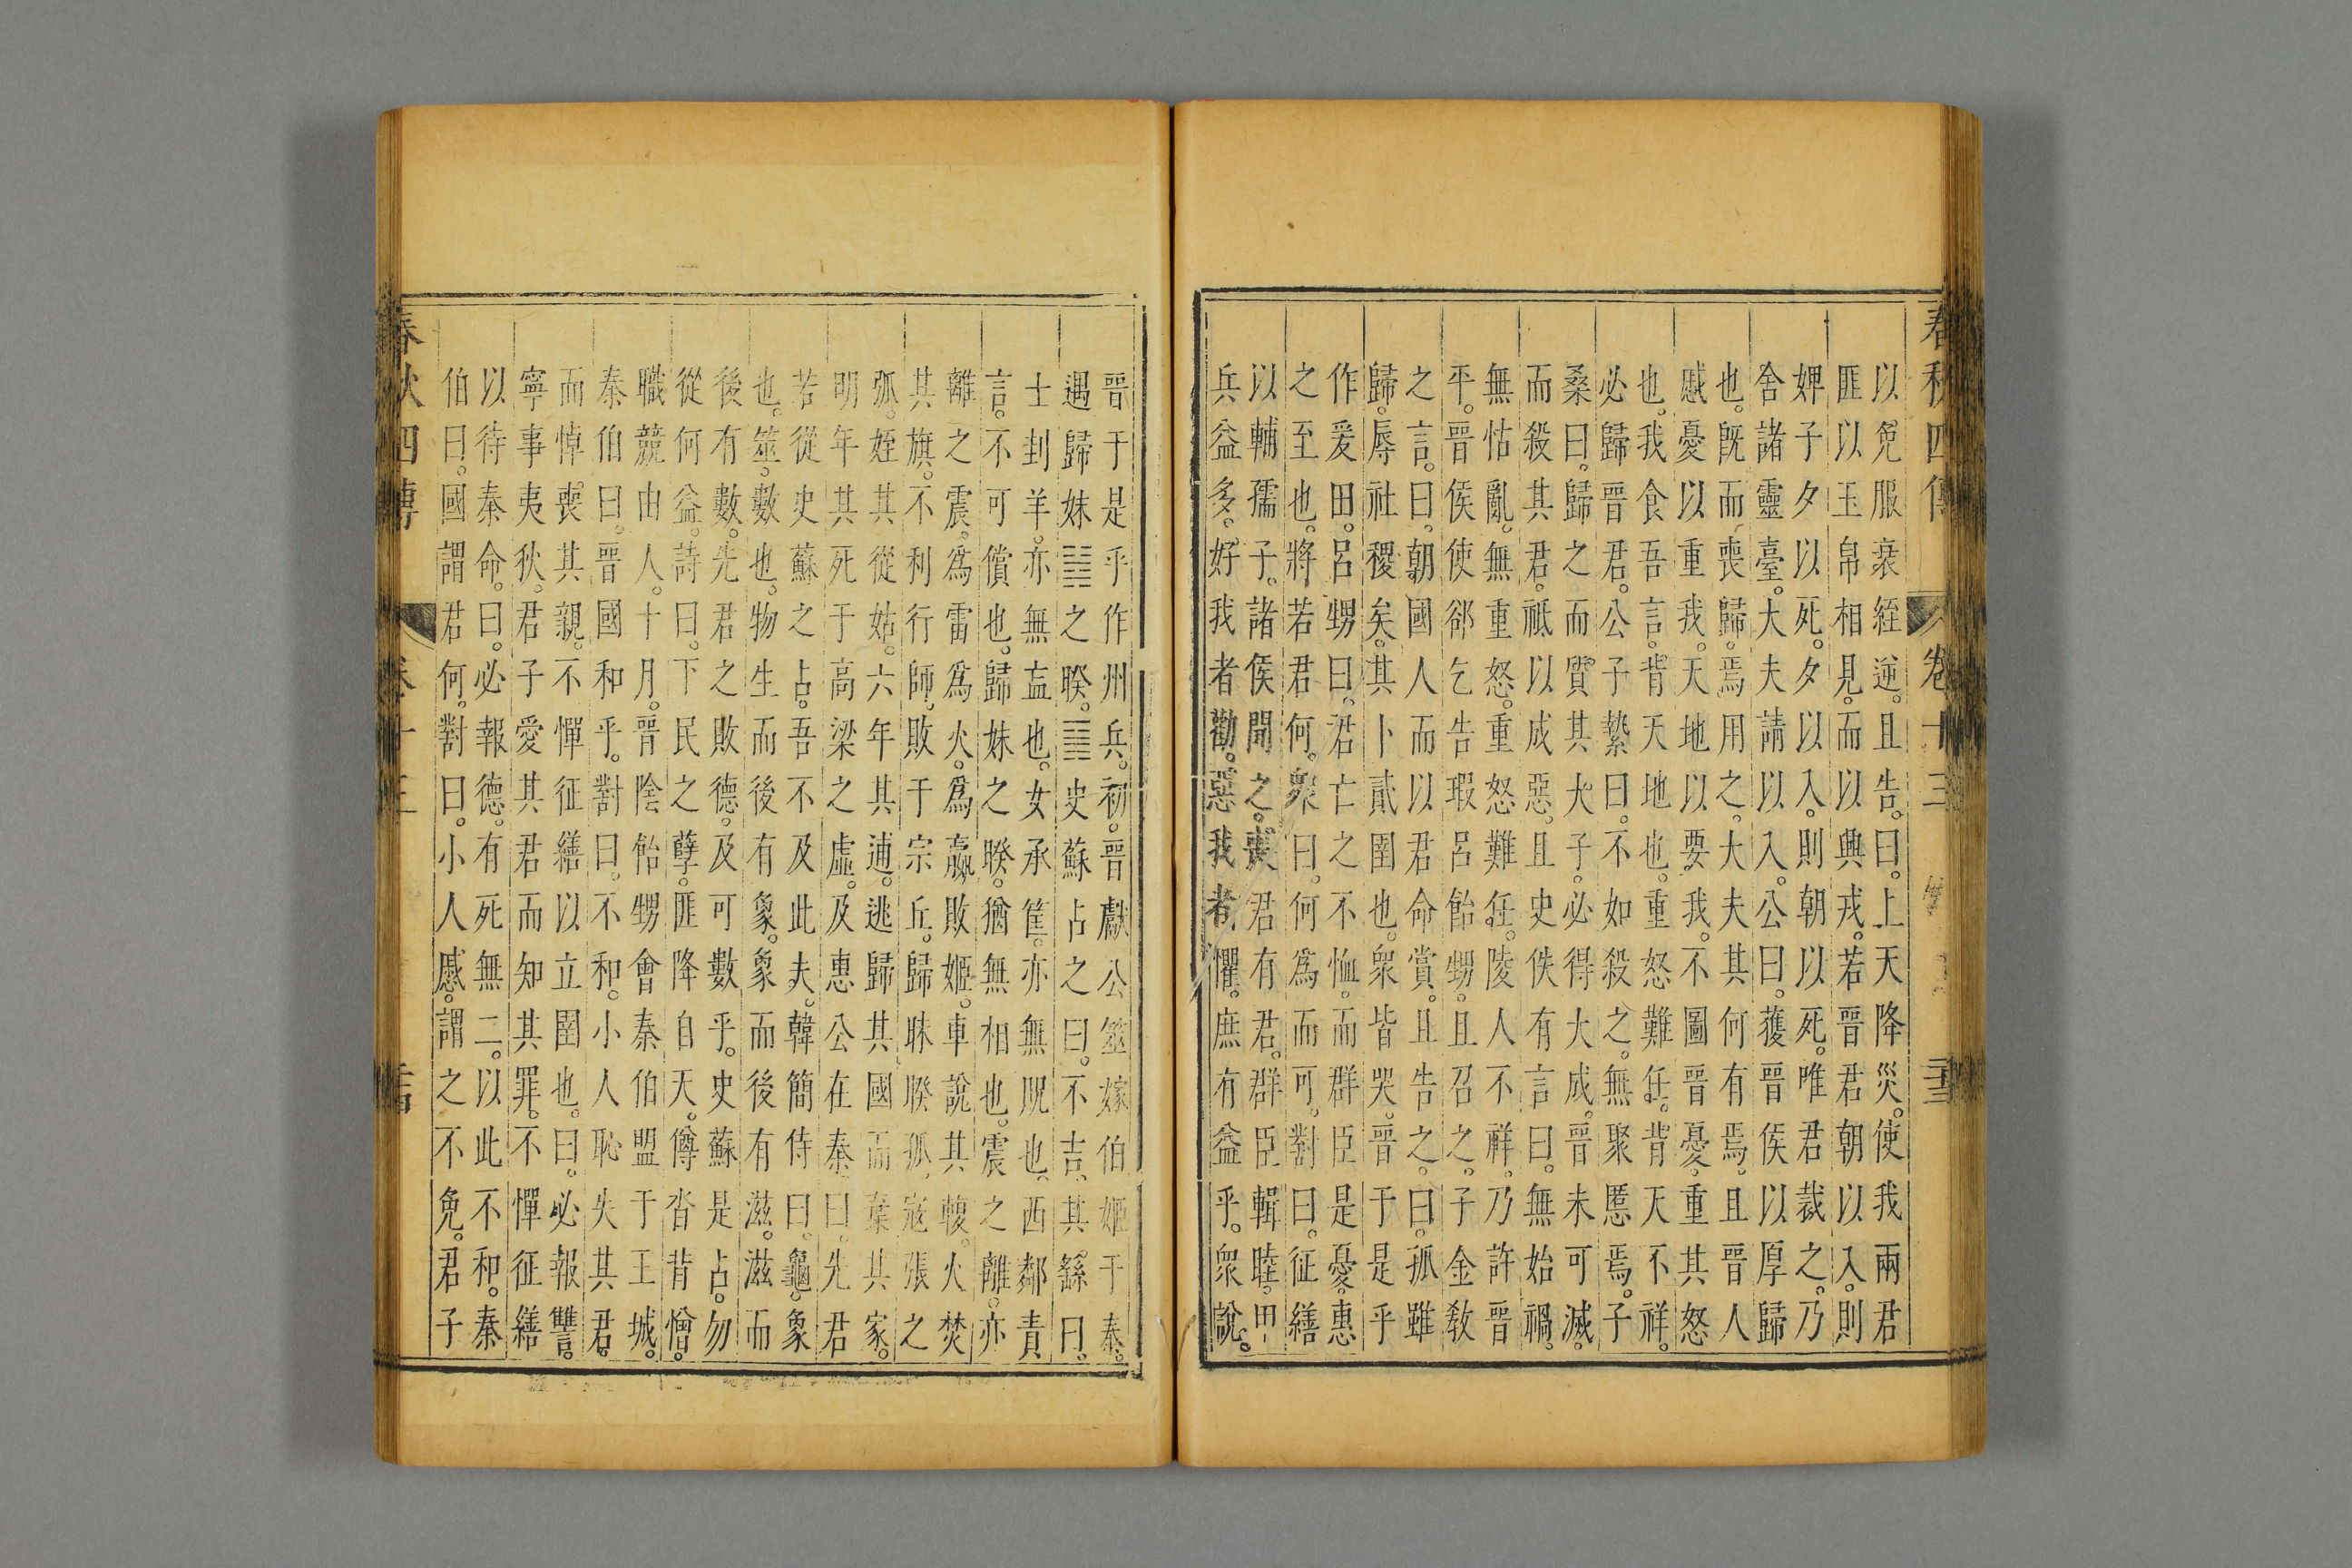 春秋四傳 卷十三 三十三
以免服衰絰逆。且告。曰。上天降災。使我兩君
匪以玉帛相見。而以興戎。若晉君朝以入。則
婢子夕以死。夕以入。則朝以死。唯君裁之。乃
舍諸靈臺。大夫請以入。公曰。獲晉侯以厚歸
也。既而喪歸。焉用之。大夫其何有焉。且晉人
慼憂以重我。天地以要我。不圖晉憂。重其怒
也。我食吾言。背天地也。重怒難任。背天不祥。
必歸晉君。公子縶曰。不如殺之。無聚慝焉。子
桑曰。歸之而質其大子。必得大成。晉未可滅。
而殺其君。祗以成惡。且史佚有言曰。無始禍。
無怙亂。無重怒。重怒難任。陵人不祥。乃許晉
平。晉侯使郤乞告瑕呂飴甥。且召之。子金敎
之言。曰。朝國人而以君命賞。且告之。曰。孤雖
歸。辱社稷矣。其卜貳圉也。衆皆哭。晉于是乎
作爰田。呂甥曰。君亡之不恤。而群臣是憂。惠
之至也。將若君何。衆曰。何為而可。對曰。征繕
以輔孺子。諸侯聞之。喪君有君。群臣輯睦。甲
兵益多。好我者勸。惡我者懼。庶有益乎。衆說。
晉于是乎作州兵。初。晉獻公筮嫁伯姬于秦。
遇歸妹䷵之睽。䷥史蘇占之曰。不吉。其繇曰。
士刲羊。亦無衁也。女承筐。亦無貺也。西鄰責
言。不可償也。歸妹之睽。猶無相也。震之離。亦
離之震。為雷為火。為嬴敗姬。車說其輹。火焚
其旗。不利行師。敗于宗丘。歸妹睽孤。寇張之
弧。姪其從姑。六年其逋。逃歸其國。而棄其家。
明年其死于高梁之虛。及惠公在秦。曰。先君
若從史蘇之占。吾不及此夫。韓簡侍曰。龜。象
也。筮。數也。物生而後有象。象而後有滋。滋而
後有數。先君之敗德。及可數乎。史蘇是占。勿
從何益。詩曰。下民之孽。匪降自天。僔沓背憎。
職競由人。十月。晉陰飴甥會秦伯盟于王城。
秦伯曰。晉國和乎。對曰。不和。小人恥失其君。
而悼喪其親。不憚征繕以立圉也。曰。必報讐。
寧事夷狄。君子愛其君而知其罪。不憚征繕
以待秦命。曰。必報德。有死無二。以此不和。秦
伯曰。國謂君何。對曰。小人慼。謂之不免。君子
春秋四傳 卷十三